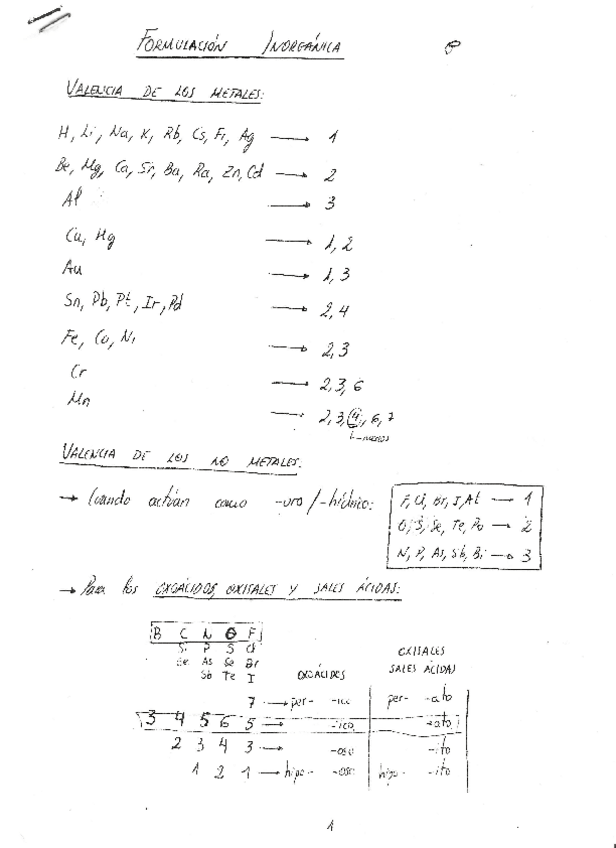 FORMULACIÓN INORGÁNICA
VALENCIA DE LOS METALES:
H, Li, Na, K, Rb, Cs, Fr, Ag → 1
Be, Mg, Ca, Sr, Ba, Ra, Zn, Cd → 2
Al → 3
Cu, Hg → 1, 2
Au → 1, 3
Sn, Pb, Pt, Ir, Pd → 2, 4
Fe, Co, Ni → 2, 3
Cr → 2, 3, 6
Mn → 2, 3, 4, 6, 7
VALENCIA DE LOS NO METALES:
→ Cuando actúan como -uro/-hídrico:
F, Cl, Br, I, At → 1
O, S, Se, Te, Po → 2
N, P, As, Sb, Bi → 3
→ Para los OXOÁCIDOS, OXISALES Y SALES ÁCIDAS:
B C N O F
Si P S Cl
Ge As Se Br
Sb Te I
OXOÁCIDOS
OXISALES
SALES ÁCIDAS
7 → per- -ico per- -ato
3 4 5 6 5 → -ico -ato
2 3 4 3 → -oso -ito
1 2 1 → hipo- -oso hipo- -ito
1